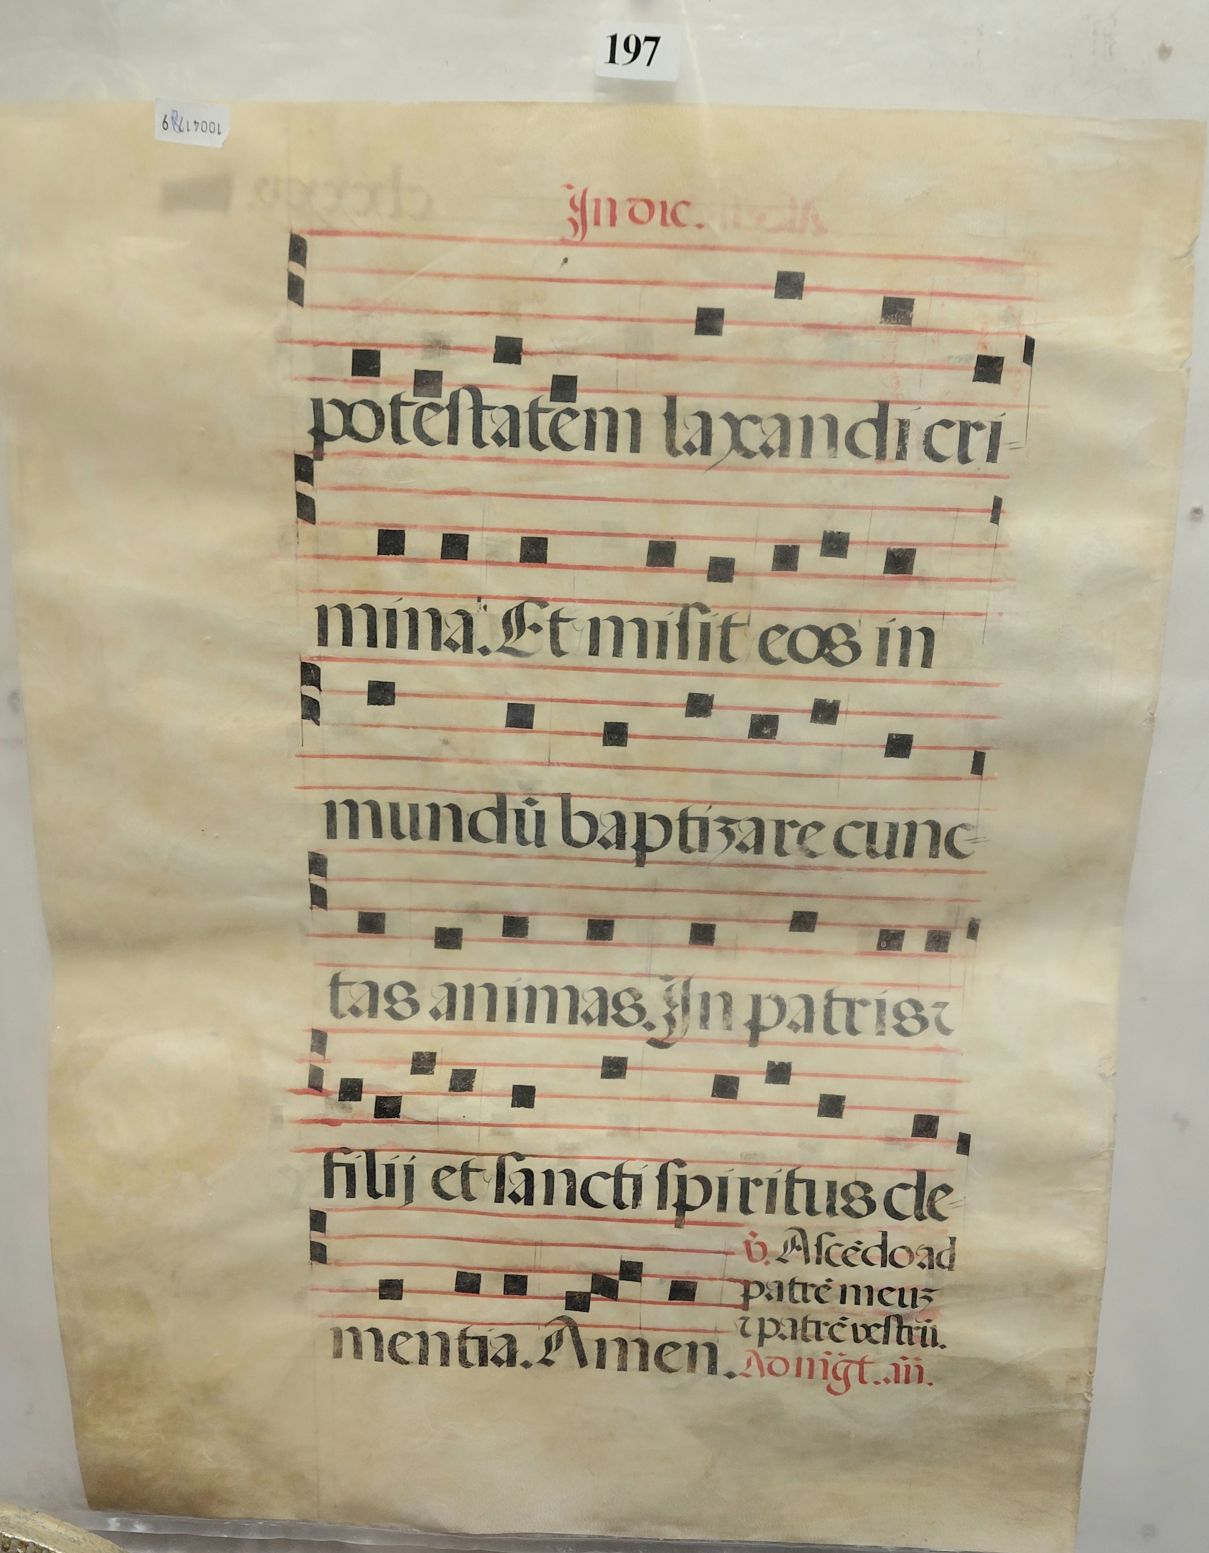 197
10041789
In die.
potestatem laxandi cri=
mina. Et misit eos in
mundū baptizare cunc=
tas animas. In patris ⁊
filij et sancti spiritus cle=
mentia. Amen.
v̄. Ascēdo ad
patrē meuʒ
⁊ patrē vestrū.
Ad mḡt. añ.